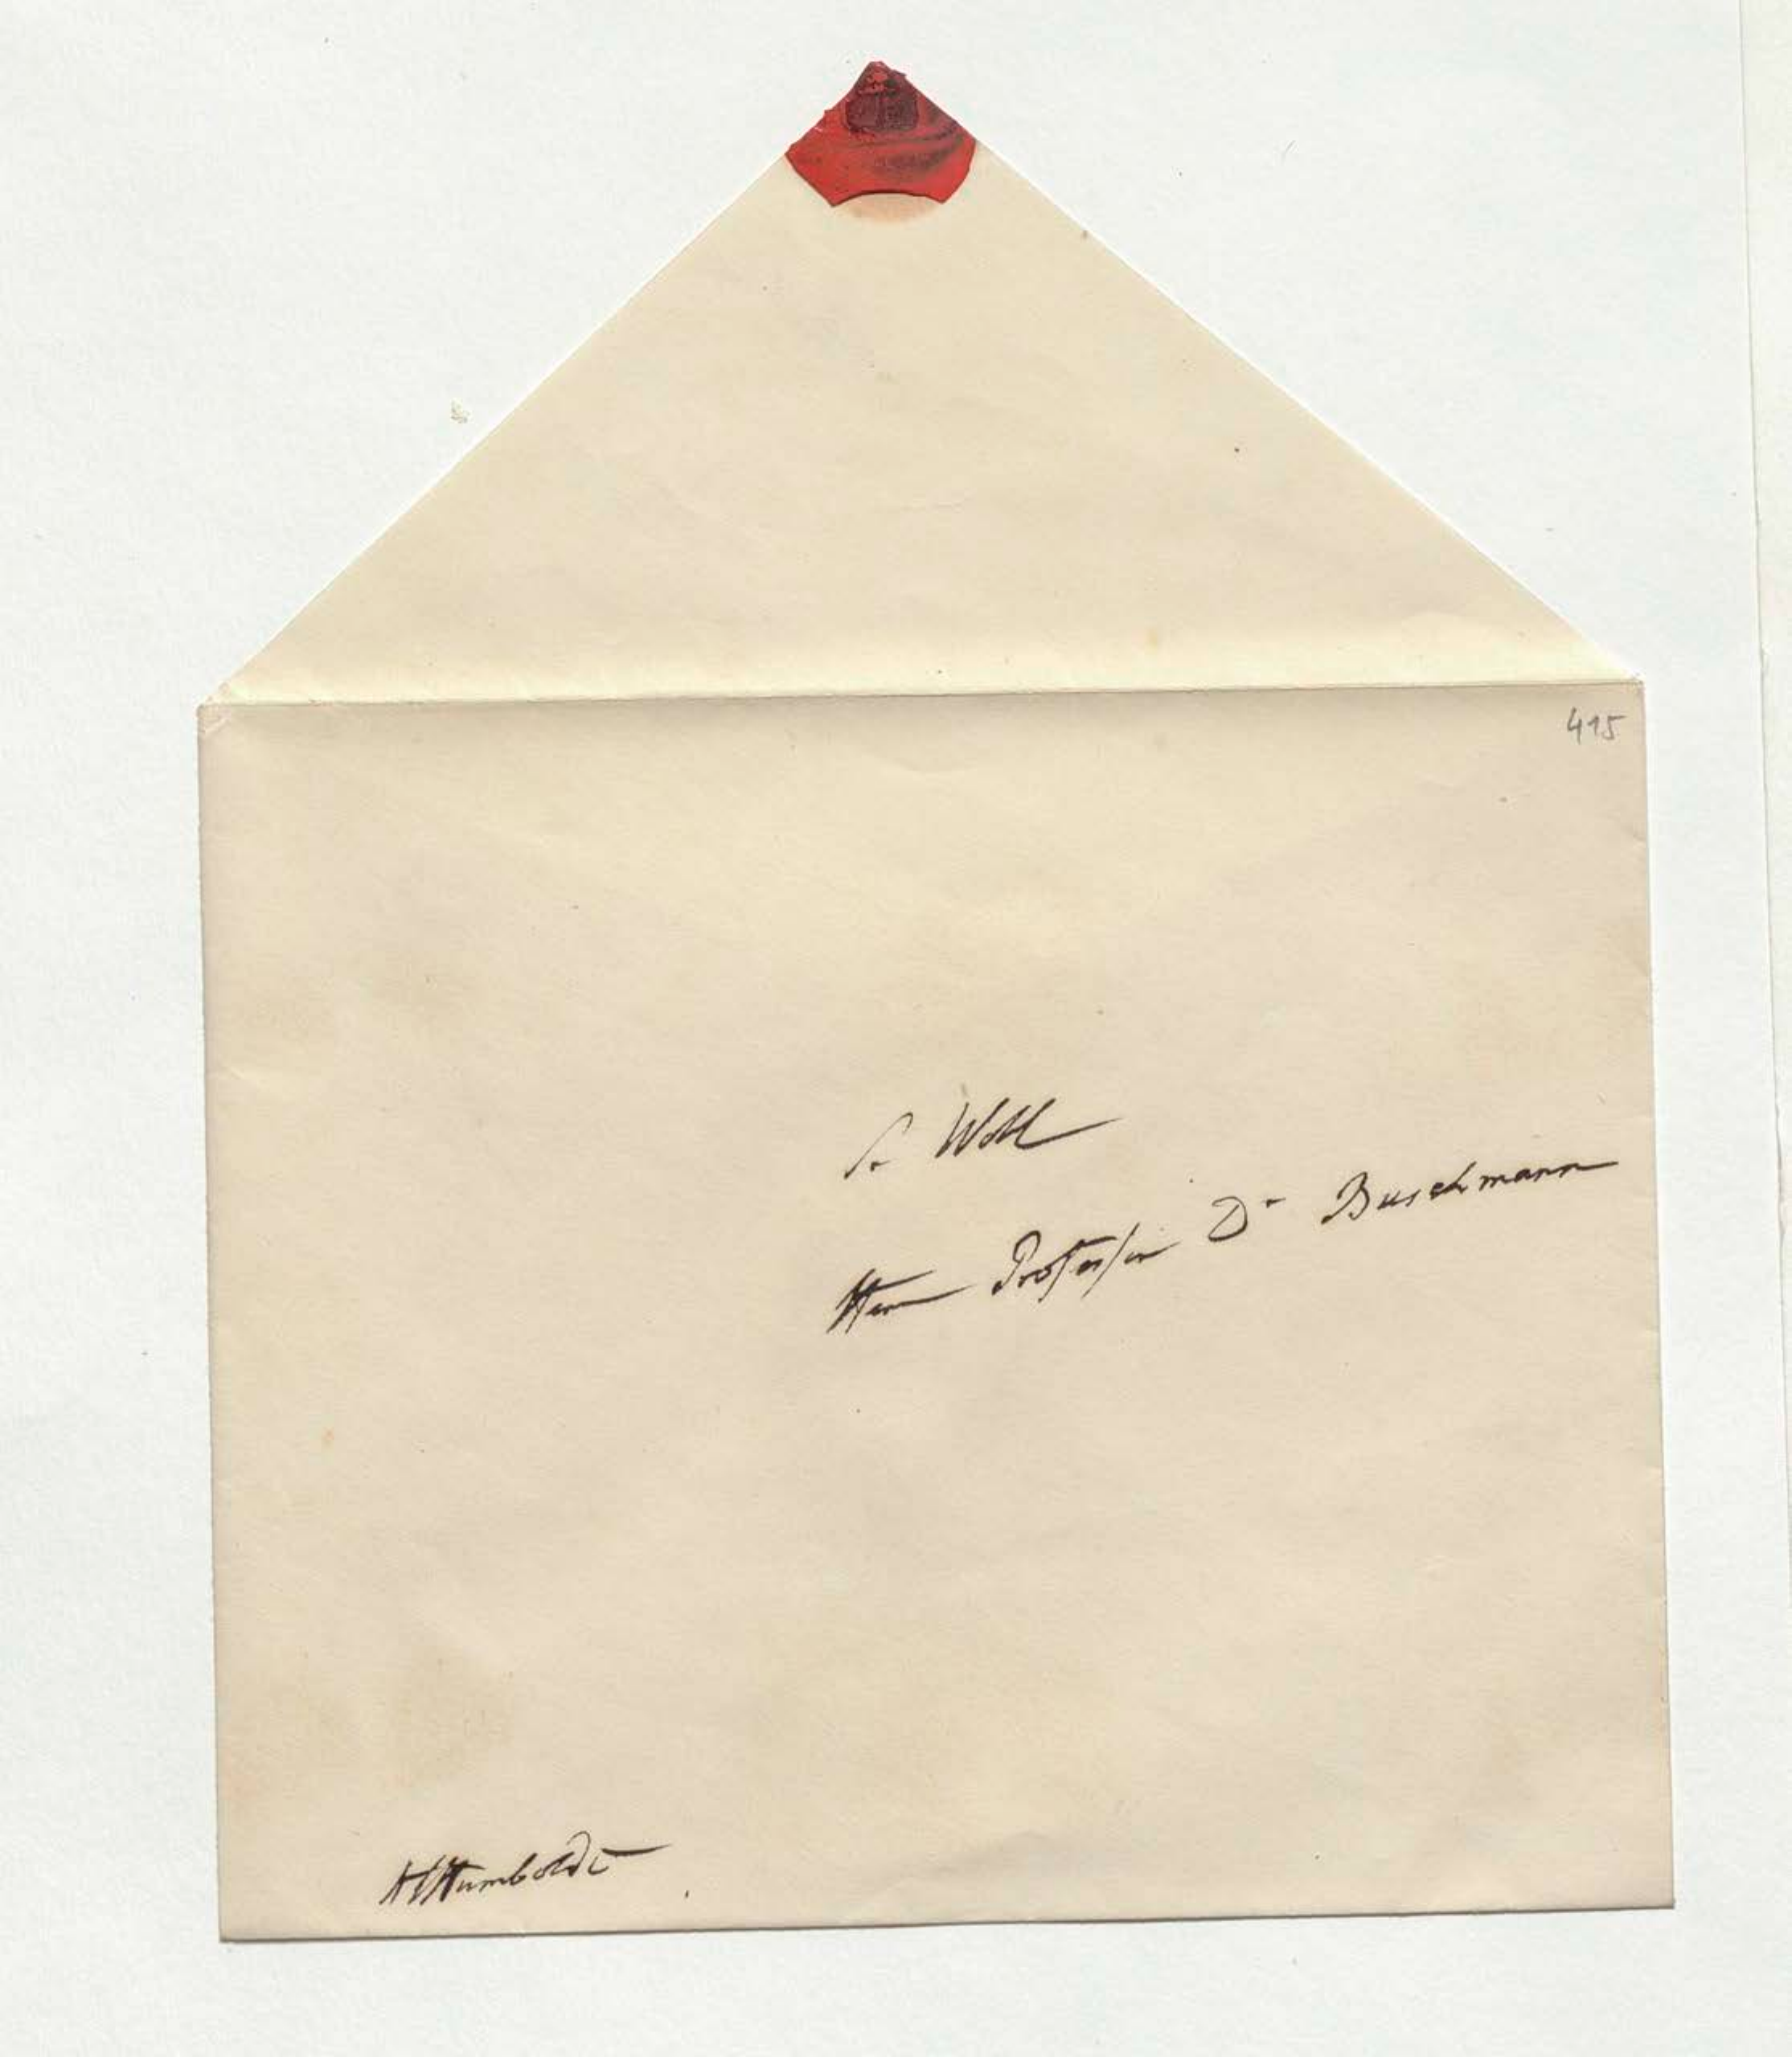 415
Sr Wohl
Herrn Professor Dr Buschmann
AHumboldt